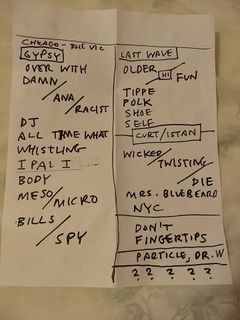 CHICAGO - RIE VIC
GYPSY
OVER WITH
DAMN/
ANA/
RACIST
DJ
ALL TIME WHAT
WHISTLING
I PAL I
BODY
MESO/
MICRO
BILLS/
SPY
LAST WAVE
OLDER/
HI FUN
TIPPE
POLK
SHOE
SELF
CURT/ISTAN
WICKED/
TWISTING/
DIE
MRS. BLUEBEARD
NYC
DON'T
FINGERTIPS
PARTICLE, DR. W
? ? ? ? ?